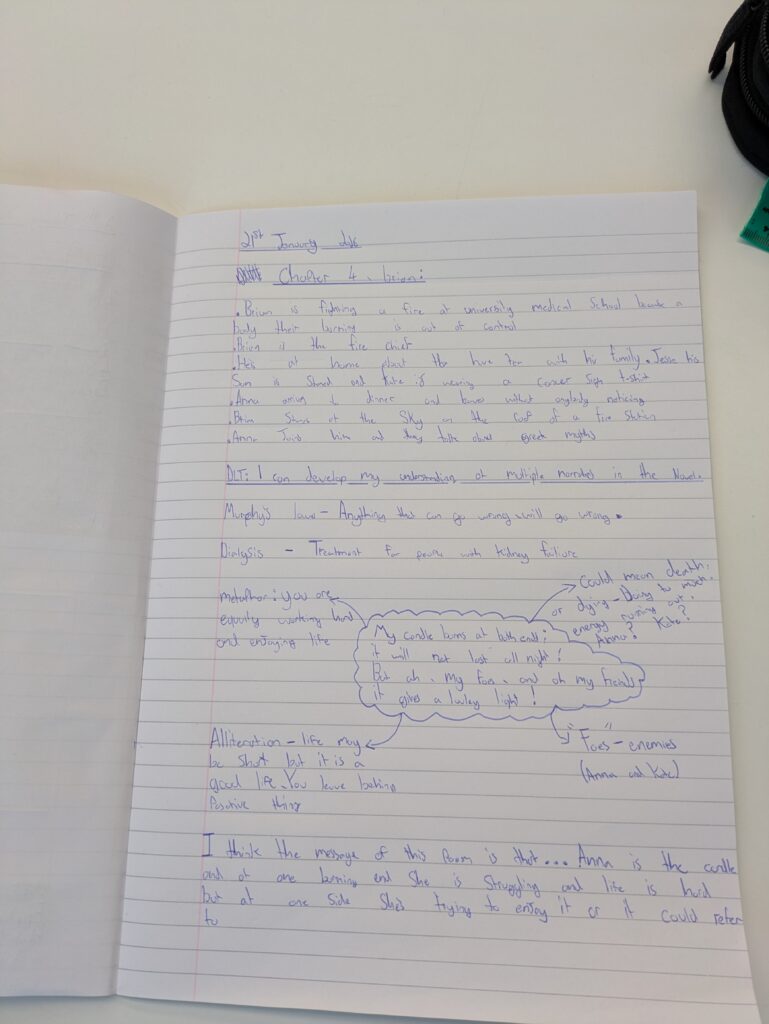 21st January 2026
Chapter 4, brian:
• Brian is fighting a fire at university medical School a
body their burning is out of control
• Brian is the fire chief
• He's at home the with his family. Jesse his
Sun is and Kate is wearing a t-shirt
• Anna to dinner and leaves without anybody noticing
• Brian at the Sky on the of a fire
• Anna Joins him and they talk about greek myths
DLT: I can develop my understanding of multiple narrated in the Novel.
Murphy's laws - Anything that can go wrong, will go wrong.
Dialysis - Treatment for people with kidney failure
metaphor: you are
equally working hard
and enjoying life
could mean death.
or dying - to much.
energy running out.
Anna? Kate?
My candle burns at both end:
it will not last all night!
But ah, my foes, and oh my friends
it gives a light!
Alliteration - life may
be short but it is a
good life. You leave behing
Positive thing
"Foes" - enemies
(Anna and Kate)
I think the message of this Poem is that... Anna is the candle
and at one burning end She is Struggling and life is hard
but at one side She's trying to enjoy it or it could refer
to